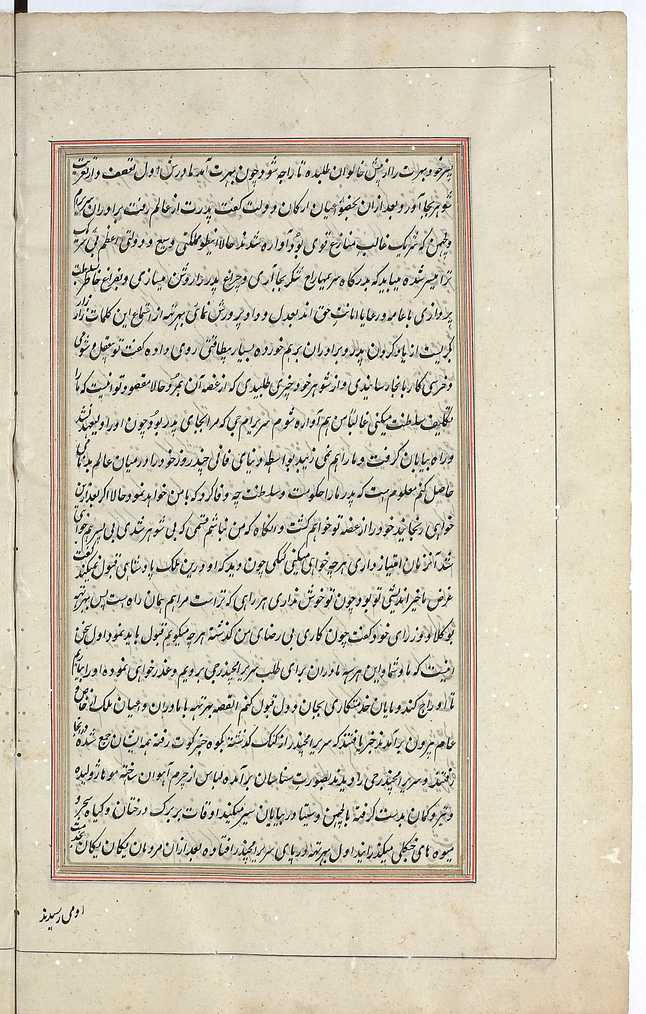 پسر خود بهرت را از پیش خالوان طلبیده تا راجه شود چون بهرت آمد مادرش اول تعصف و تعزیت
شوهر بجا آورد بعد ازان بحضور اعیان ارکان دولت گفت پدرت از عالم رفت برادران
و لچهمن که شریک غالب منازع قوی بود آواره شدند حالا اینطور ملکی وسیع و دولتی اعظم بی
ترا میسر شده میباید که بدرگاه سری مهاراج شکر بجا آری و چراغ پدر را روشن میسازی و بفراغ خاطر
پردازی با عامه و رعایا امانت حق اند بعدل و داد پرورش نمائی بهرتهه از استماع این کلمات زار زار
بگریست از یاد کردن پدر و برادران برهم خورده بسیار روی داده گفت تو
و خرسی کار با نجا رسانیدی و از شوهر خود چیزی طلبیدی که از غصه آن بمرد حالا مقصود تو اینست که مارا
تکلیف سلطنت میکنی غالبا من هم آواره شوم سری رام جی که مرا بجای پدر بود چون او را
و راه بیابان گرفت و ما را هم نمی زیبد بواسطه دنیای فانی چند روز خود را در میان عالم بدنامی
حاصل کنم معلوم است که پدر ما را حکومت و سلطنت چه وفا کرد که با من خواهد نمود حالا اگر بعد ازین
خواهی رنجانید خود را از غصه تو خواهم کشت و آنگاه که من نباشم تو که بی شوهر شدی بی پسر هم خواهی
شد آنزمان اختیار داری هرچه خواهی میکنی کیکی چون دید که او درین ملک پادشاهی قبول نمیکند گفت
غرض ما خیر اندیشی تو بود چون تو خوش نداری هر راهی که تراست مرا هم همان راه است پس بهرتهه
بوکلا و وزرای خود گفت چون کاری بی رضای من گذشته هرچه میگویم قبول باید نمود اول سخن
اینست که ما و شما و این هر سه مادران برای طلب سری رامچندر جی برویم و عذر خواهی نموده او را بیاریم
تا او راج کند و مایان خدمتگاری بجان و دل قبول کنم القصه بهرتهه با مادران و اعیان ملک از خاص و
عام بیرون برآمدند خبر یافتند که سری رامچندر از گنگ گذشته بکوه چترکوت رفته همه ایشان جمع شده در آنجا
رفتند و سری رامچندر جی را دیدند بصورت سناسیان برآمده لباس از چرم آهوان ساخته موها ژولیده
و تیر و کمان بدست گرفته با لچهمن و سیتا در بیابان سیر میکند اوقات بر برگ درختان و گیاه
میوه های جنگلی میگذرانید اول بهرتهه در پای سری رامچندر افتاده بعد ازان مردمان یکان یکان
او می رسیدند